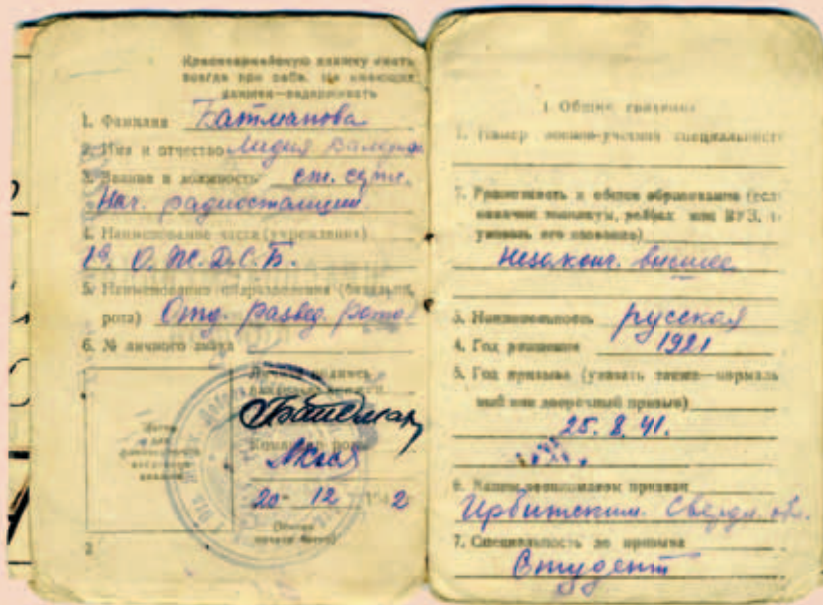 Красноармейскую книжку иметь
всегда при себе. Не имеющих
книжек—задерживать
1. Фамилия Батманова
2. Имя и отчество Лидия
3. Звание и должность ст. серж.
Нач. радиостанции
4. Наименование части (учреждения)
1й О.Ж.Д.С.Б.
5. Наименование подразделения (батальон,
рота) Отд. развед. рота
6. № личного знака
Личная подпись
владельца книжки
Командир роты
20 12 1942
Место
для
фотографической
карточки
2
I. Общие сведения
1. Номер военно-учетной специальности
2. Грамотность и общее образование (если
окончил техникум, рабфак или ВУЗ, то
указать его название)
Незаконч. высшее
3. Национальность русская
4. Год рождения 1921
5. Год призыва (указать также—нормаль
ный или досрочный призыв)
25. 8. 41.
6. Каким военкоматом призван
Ирбитским Свердл. обл.
7. Специальность до призыва
Студент